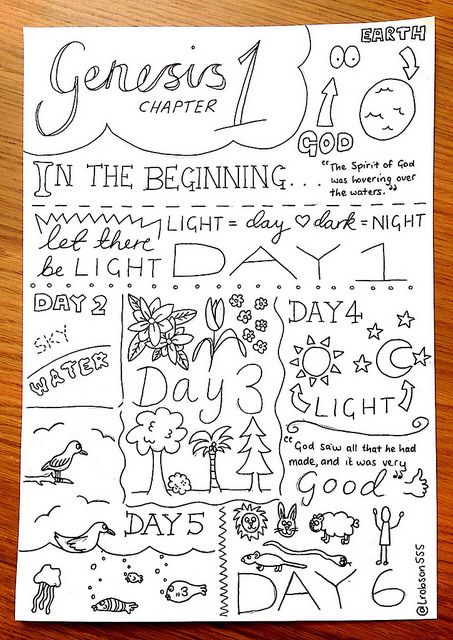 Genesis 1
CHAPTER
EARTH
GOD
IN THE BEGINNING...
"The Spirit of God
was hovering over
the waters."
let there
be LIGHT
LIGHT = day ♡ dark = NIGHT
DAY 1
DAY 2
SKY
WATER
Day 3
DAY 4
LIGHT
"God saw all that he had
made, and it was very
Good"
DAY 5
DAY 6
@Lrobson555